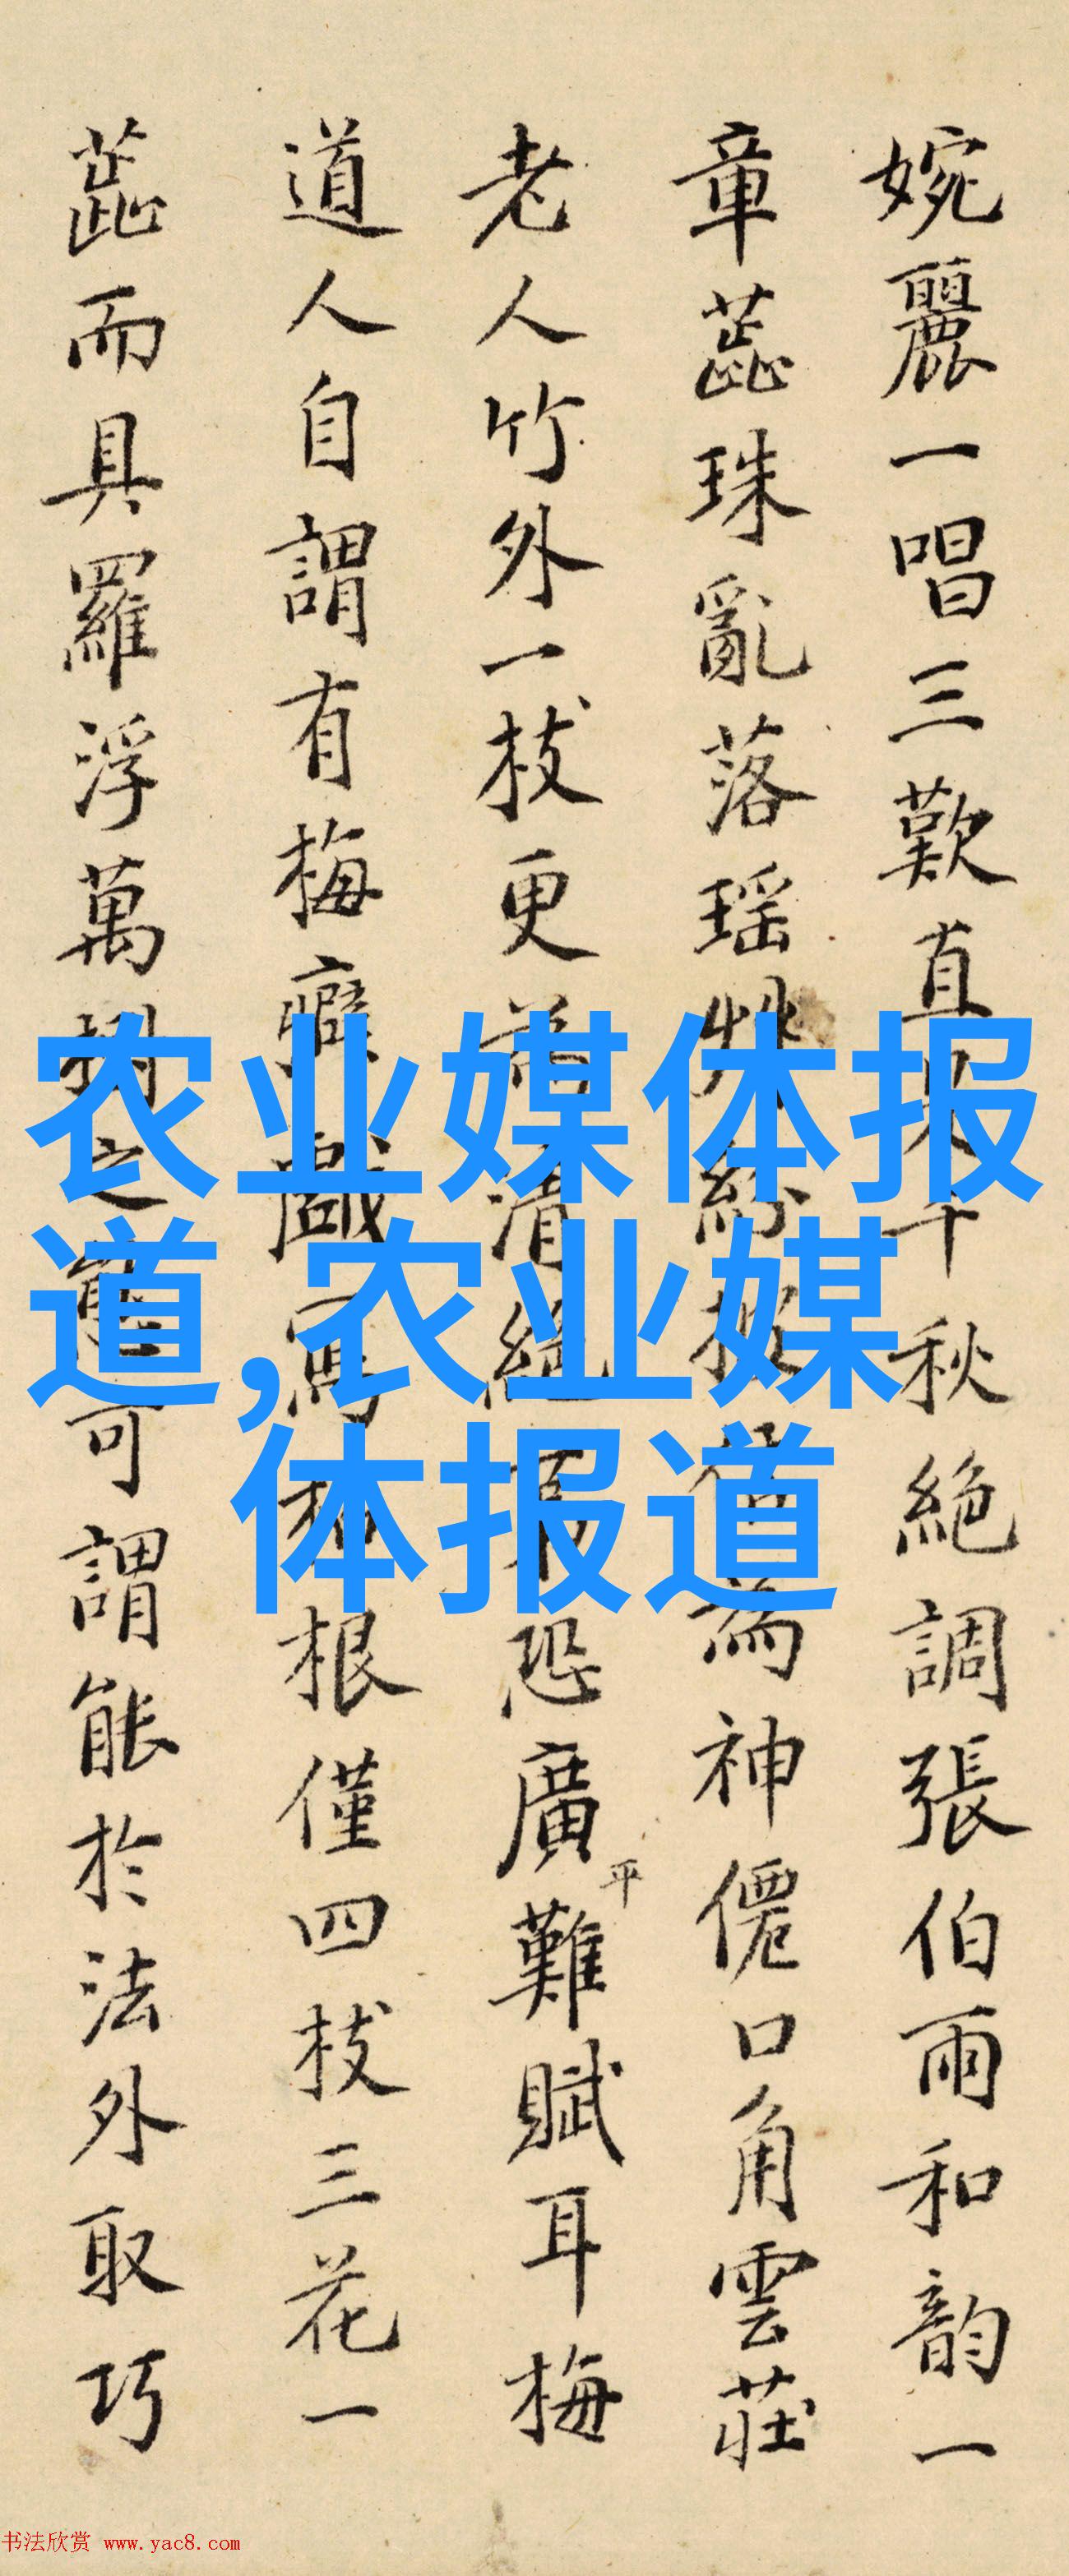 婉麗一唱三歎直是千秋絶調張伯雨和韵一
章蕋珠亂落瑶艸紛披信為神僊口角雲莊
老人竹外一枝更為清絕平恐廣難賦耳梅
道人自謂有梅癖戲寫梅根僅四枝三花一
蕋而具羅浮萬樹之可謂能於法外取巧
农业媒体报
道,农业媒
体报道
书法欣赏 www.yac8.com